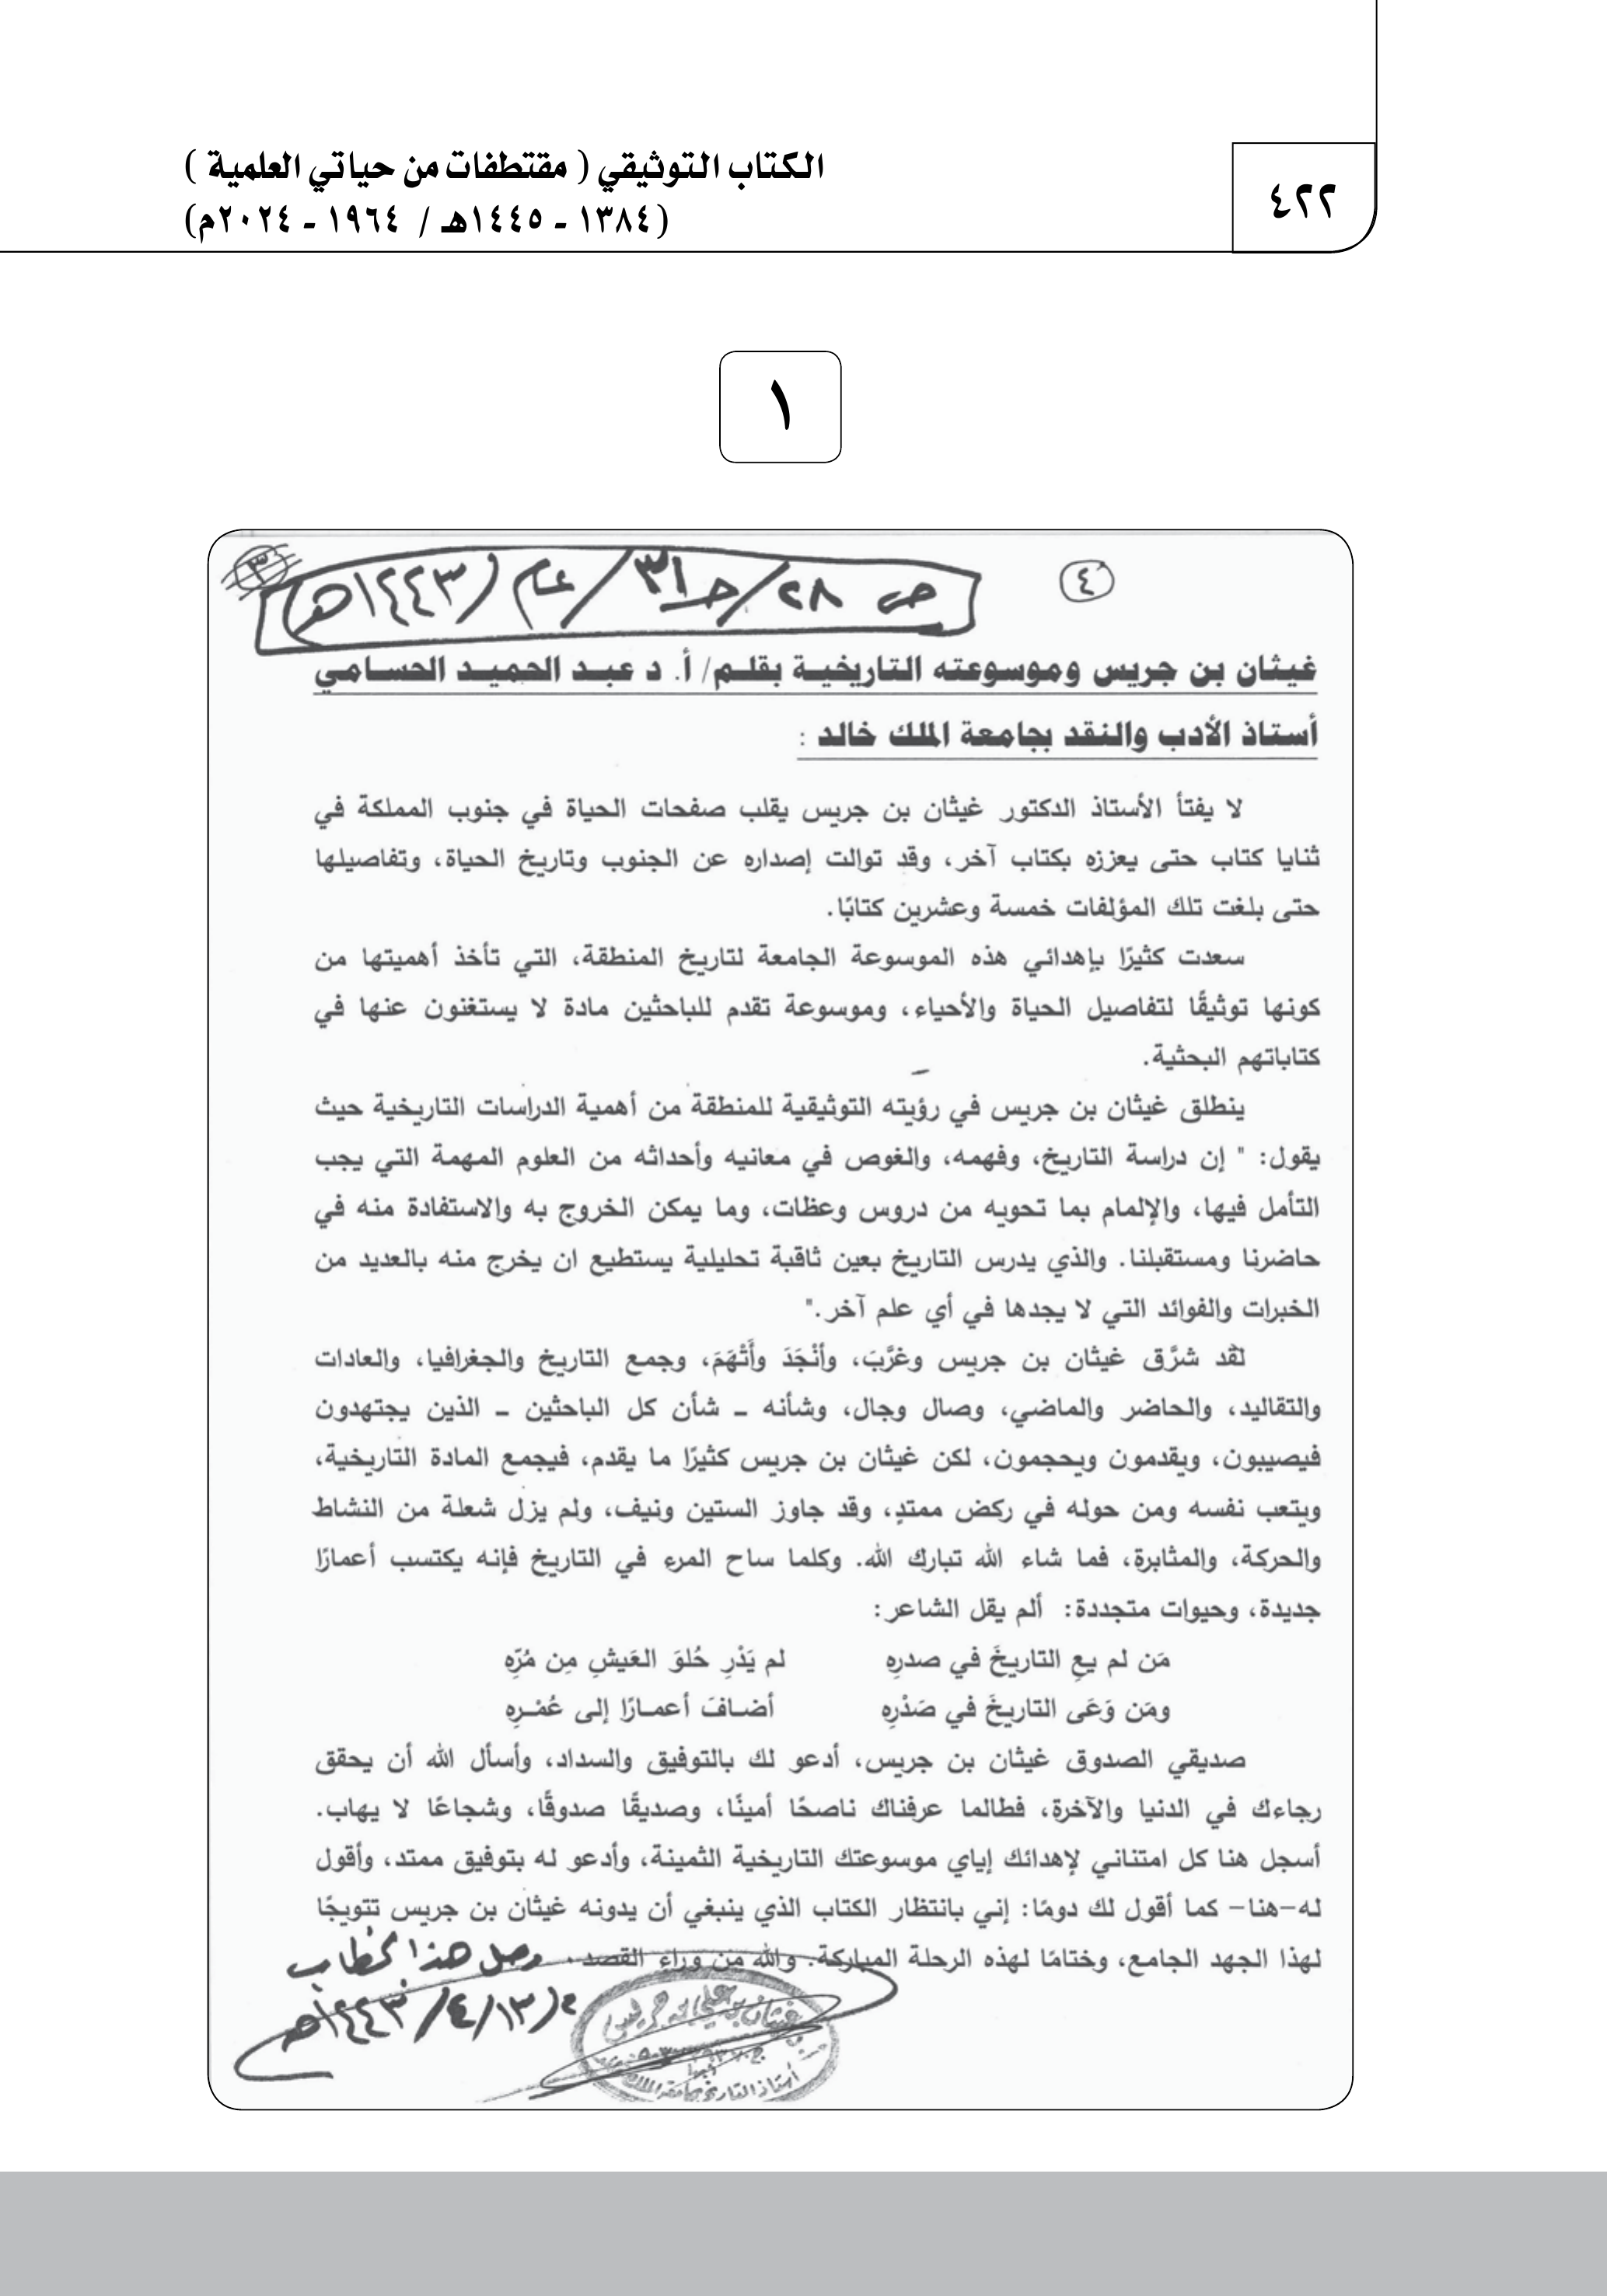 الكتاب التوثيقي ( مقتطفات من حياتي العلمية )
(١٣٨٤ - ١٤٤٥هـ / ١٩٦٤ - ٢٠٢٤م)
٤٢٢
١
٤
٣
ص ٢٨/ جـ ٣١/ عام (١٤٤٣هـ)
غيثان بن جريس وموسوعته التاريخية بقلم/ أ. د عبد الحميد الحسامي
أستاذ الأدب والنقد بجامعة الملك خالد :
لا يفتأ الأستاذ الدكتور غيثان بن جريس يقلب صفحات الحياة في جنوب المملكة في
ثنايا كتاب حتى يعززه بكتاب آخر، وقد توالت إصداره عن الجنوب وتاريخ الحياة، وتفاصيلها
حتى بلغت تلك المؤلفات خمسة وعشرين كتابًا.
سعدت كثيرًا بإهدائي هذه الموسوعة الجامعة لتاريخ المنطقة، التي تأخذ أهميتها من
كونها توثيقًا لتفاصيل الحياة والأحياء، وموسوعة تقدم للباحثين مادة لا يستغنون عنها في
كتاباتهم البحثية.
ينطلق غيثان بن جريس في رؤيته التوثيقية للمنطقة من أهمية الدراسات التاريخية حيث
يقول: " إن دراسة التاريخ، وفهمه، والغوص في معانيه وأحداثه من العلوم المهمة التي يجب
التأمل فيها، والإلمام بما تحويه من دروس وعظات، وما يمكن الخروج به والاستفادة منه في
حاضرنا ومستقبلنا. والذي يدرس التاريخ بعين ثاقبة تحليلية يستطيع ان يخرج منه بالعديد من
الخبرات والفوائد التي لا يجدها في أي علم آخر."
لقد شرَّق غيثان بن جريس وغرَّبَ، وأنْجَدَ وأَتْهَمَ، وجمع التاريخ والجغرافيا، والعادات
والتقاليد، والحاضر والماضي، وصال وجال، وشأنه – شأن كل الباحثين – الذين يجتهدون
فيصيبون، ويقدمون ويحجمون، لكن غيثان بن جريس كثيرًا ما يقدم، فيجمع المادة التاريخية،
ويتعب نفسه ومن حوله في ركض ممتدٍ، وقد جاوز الستين ونيف، ولم يزل شعلة من النشاط
والحركة، والمثابرة، فما شاء الله تبارك الله. وكلما ساح المرء في التاريخ فإنه يكتسب أعمارًا
جديدة، وحيوات متجددة: ألم يقل الشاعر:
مَن لم يعِ التاريخَ في صدرِه لم يَدْرِ حُلوَ العَيشِ مِن مُرِّه
ومَن وَعَى التاريخَ في صَدْرِه أضافَ أعمارًا إلى عُمْرِه
صديقي الصدوق غيثان بن جريس، أدعو لك بالتوفيق والسداد، وأسأل الله أن يحقق
رجاءك في الدنيا والآخرة، فطالما عرفناك ناصحًا أمينًا، وصديقًا صدوقًا، وشجاعًا لا يهاب.
أسجل هنا كل امتناني لإهدائك إياي موسوعتك التاريخية الثمينة، وأدعو له بتوفيق ممتد، وأقول
له-هنا- كما أقول لك دومًا: إني بانتظار الكتاب الذي ينبغي أن يدونه غيثان بن جريس تتويجًا
لهذا الجهد الجامع، وختامًا لهذه الرحلة المباركة. والله من وراء القصد.
وصل هذا الخطاب
١٣/٤/١٤٤٣هـ
غيثان بن علي بن جريس
أستاذ التاريخ بجامعة الملك